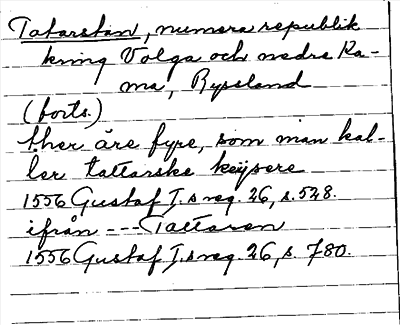 Tatarstan, numera republik
kring Volga och nedre Ka-
ma, Ryssland
(forts.)
ther äre fyre, som man kal-
ler tattarske keÿsere
1556 Gustaf I.s reg. 26, s. 528.
ifrån --- Tattaren
1556 Gustaf I.s reg. 26, s. 780.